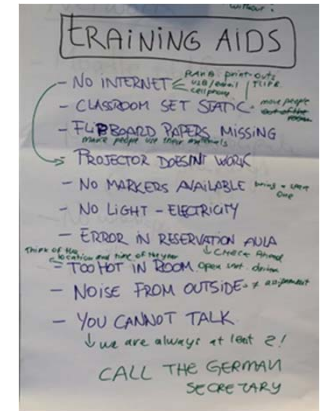 without:
TRAINING AIDS
- NO INTERNET
print-outs
USB/email
cellphone
- CLASSROOM SET STATIC
move people
- FLIPBOARD PAPERS MISSING
make people use their materials
PROJECTOR DOESNT WORK
- NO MARKERS AVAILABLE
bring a spare
one
- NO LIGHT - ELECTRICITY
- ERROR IN RESERVATION AULA
↓ CHECK Ahead
Think of the
location and time of the year
- TOO HOT IN ROOM
open
- NOISE FROM OUTSIDE
- YOU CANNOT TALK
↓ we are always at least 2!
CALL THE GERMAN
SECRETARY